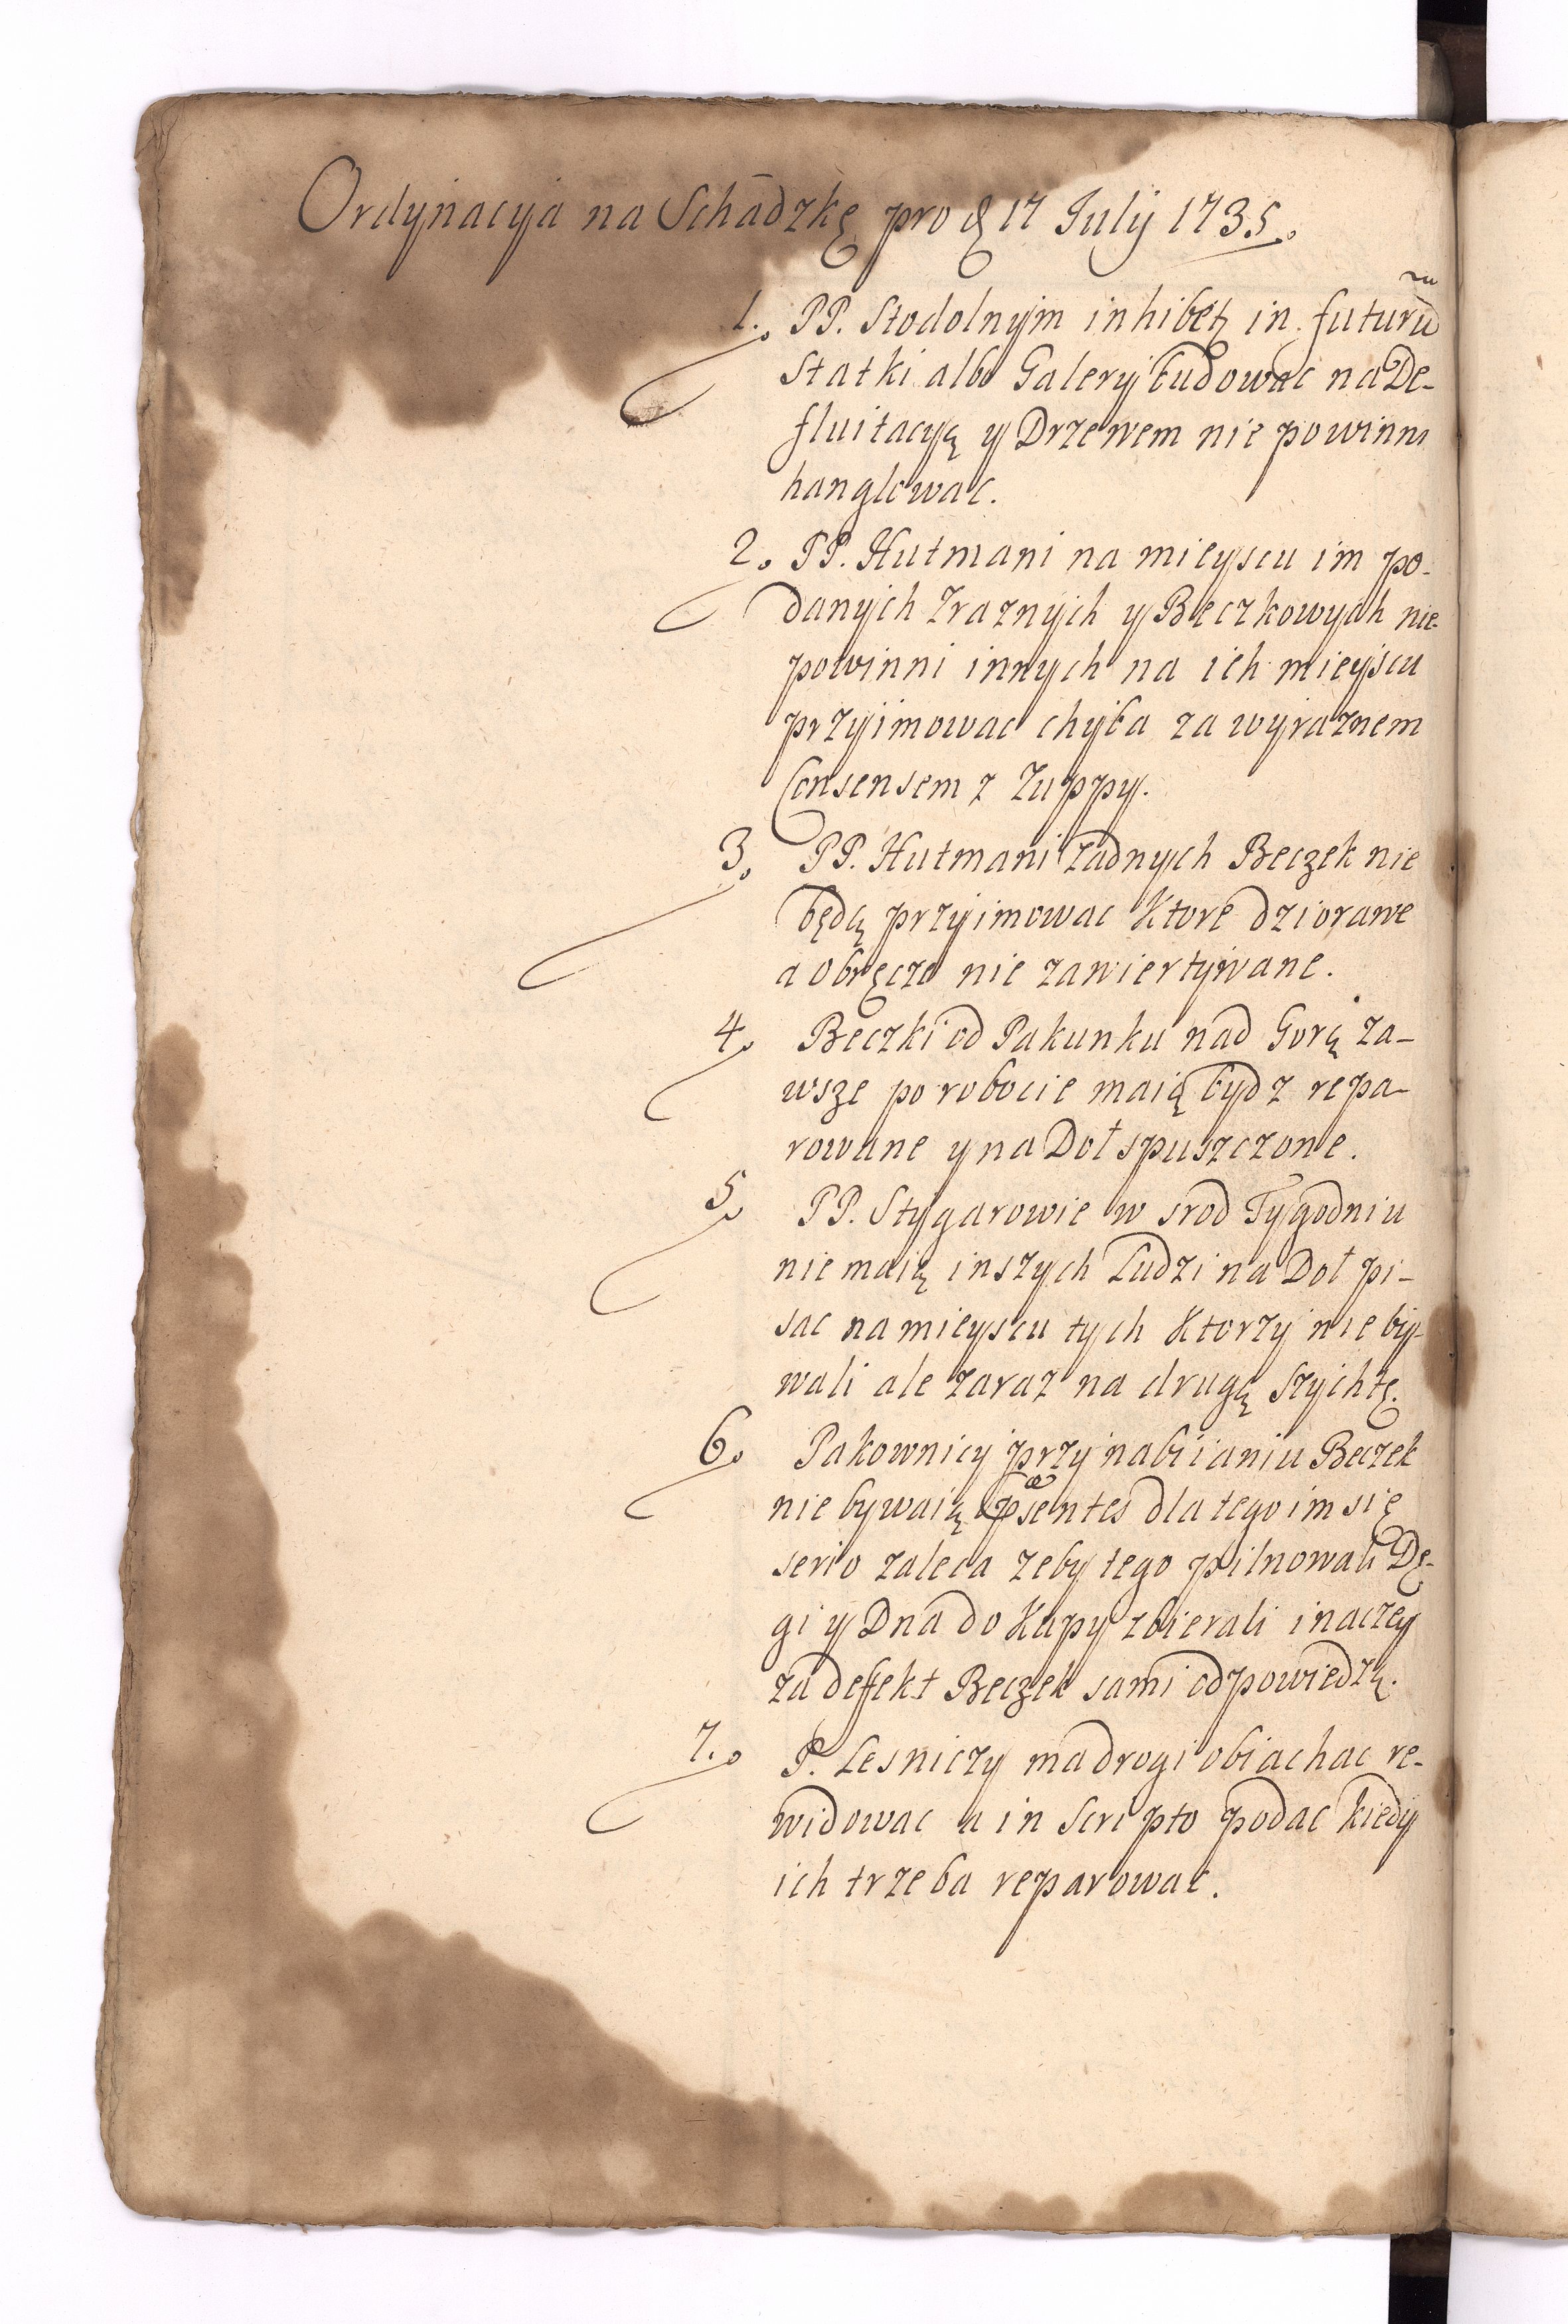 Ordynacyia na Schādzkę pro & 17 Julij 1735.
1. PP. Stodolnym inhibetʒ in futurũ
Statki albo Galery budowac na De-
fluitacyą y Drzewem nie powinni
hanglowac.
2. PP. Hutmani na mieyscu im po-
danych Zraznych y Beczkowych nie-
powinni innych na ich mieyscu
przyimowac chyba za wyraznem
Consensem z Zuppy.
3. PP. Hutmani zadnych Beczek nie
będą przyimowac Ktore dziorawe
a obręcze nie zawiertywane.
4. Beczki od Pakunku nad Gorą za-
wsze po robocie maią bydz repa-
rowane y na Doł spuszczone.
5. PP. Stygarowie w srod Tygodniu
nie maią inszych Ludzi na Doł pi-
sac na mieyscu tych Ktorzy nie by-
wali ale zaraz na drugą szychtę.
6. Pakownicy przy nabiianiu Beczek
nie bywaią pæsentes dla tego im się
serio zaleca zeby tego pilnowali Dę-
gi y Dna do Kupy zbierali inaczey
za deffekt Beczek sami odpowiedzą.
7. P. Lesniczy ma drogi obiachac re-
widowac a in Scripto podac kiedy
ich trzeba reparowac.